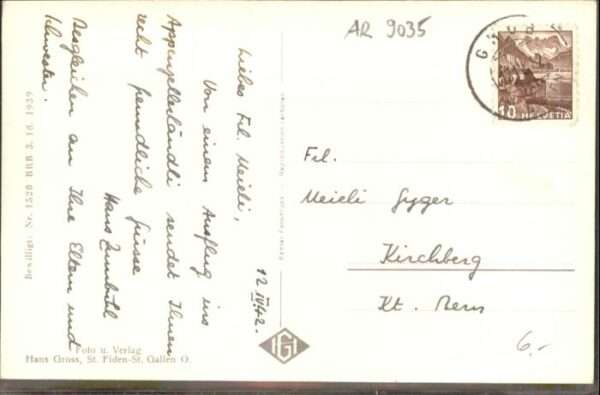 AR 9035
12 IV 42.
Liebes Frl. Meieli,
Von einem Ausflug ins
Appenzellerländli sendet Ihnen
recht freundliche Grüsse
Hans Zumbühl
Desgleichen an Ihre Eltern und
Schwester.
Frl.
Meieli Gyger
Kirchberg
Kt. Bern
6.-
10 HELVETIA
IGI
Foto u. Verlag
Hans Gross, St. Fiden-St. Gallen O.
Bewilligt: Nr. 1520 BRB 3. 10. 1939